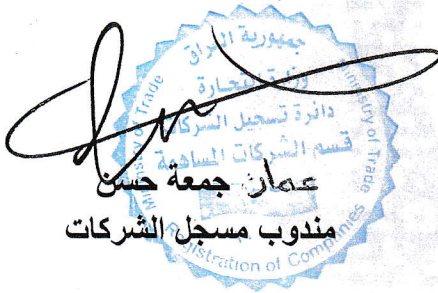 جمهورية العراق
وزارة التجارة
دائرة تسجيل الشركات
قسم الشركات المساهمة
Ministry of Trade
Ministry of Trade
Registration of Companies
عمار جمعة حسن
مندوب مسجل الشركات